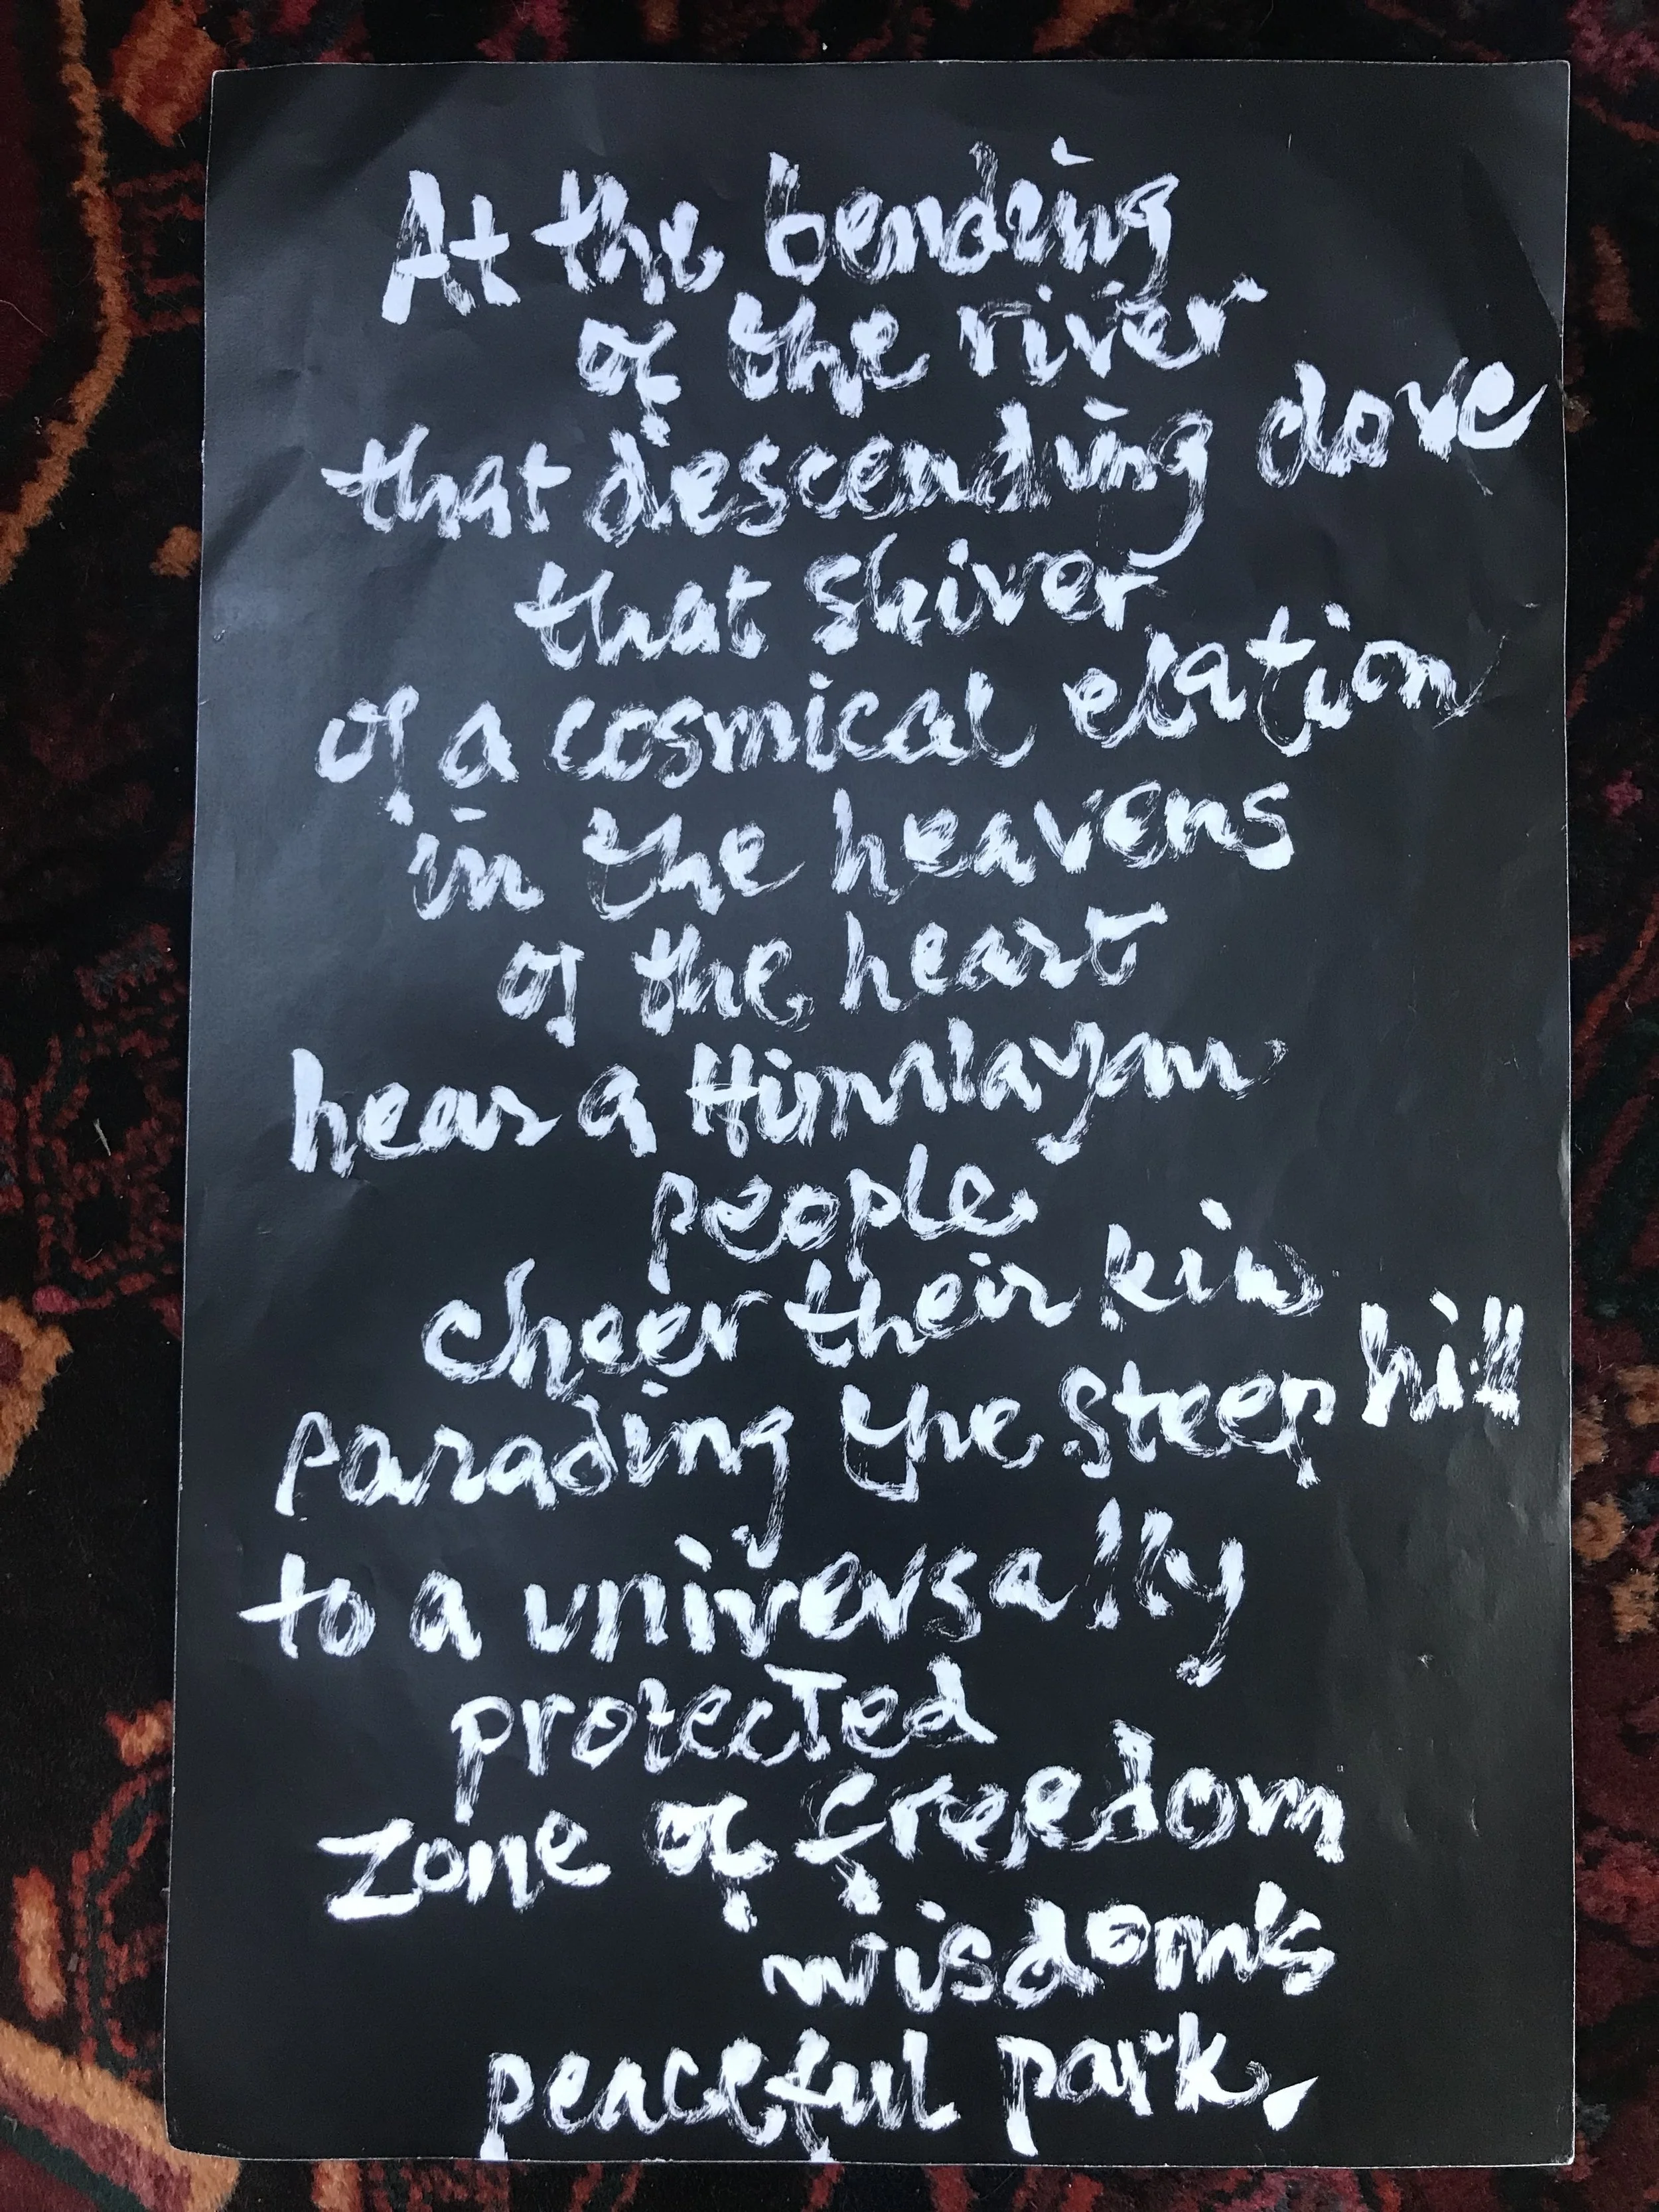 At the bending
of the river
that descending dove
that shiver
of a cosmical elation
in the heavens
of the heart
hear a Himalayan
people
cheer their kin
parading the steep hill
to a universally
protected
zone of freedom
wisdom's
peaceful park.